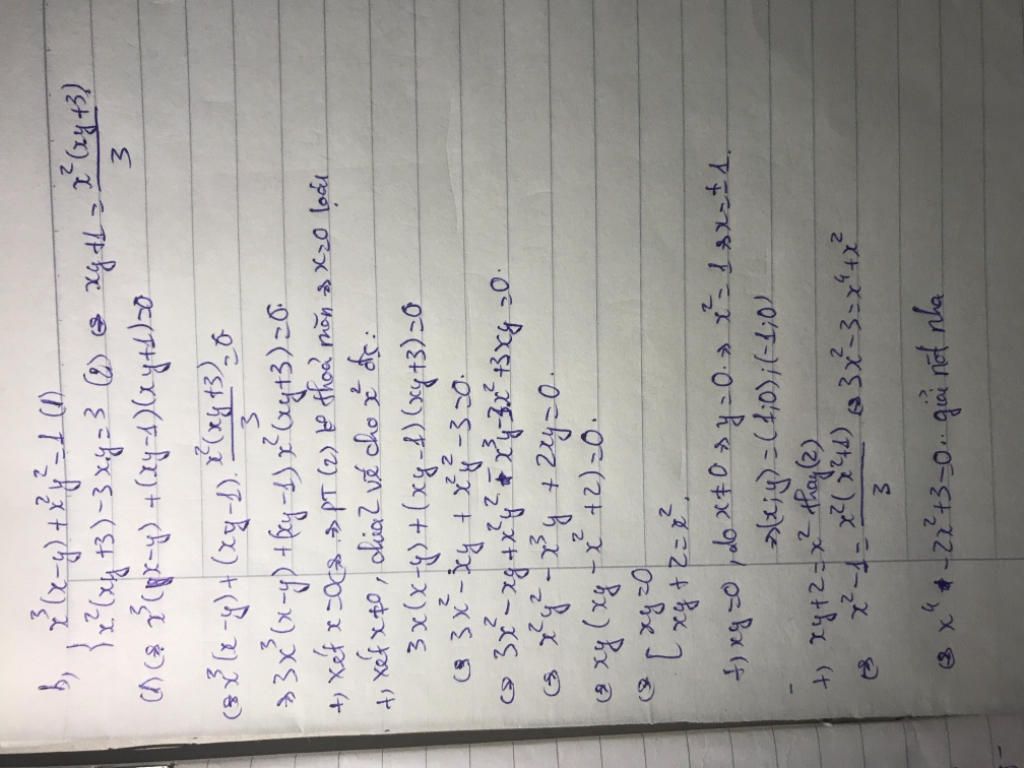 b, { x³(x-y)+x²y²=1 (1)
x²(xy+3)-3xy=3 (2) ⇔ xy+1 = x²(xy+3)/3
(1) ⇔ x³(x-y)+(xy-1)(xy+1)=0
⇔ x³(x-y)+(xy-1).x²(xy+3)/3=0
⇒ 3x³(x-y)+(xy-1)x²(xy+3)=0.
+) xét x=0 ⇒ PT (2) thoả mãn ⇒ x=0 loại
+) xét x≠0, chia 2 vế cho x² đc:
3x(x-y)+(xy-1)(xy+3)=0
⇔ 3x²-xy+x²y²-3=0.
⇔ 3x²-xy+x²y²-x³y-3x²+3xy=0.
⇔ x²y²-x³y+2xy=0.
⇔ xy(xy-x²+2)=0.
⇔ [ xy=0
xy+2=x².
+) xy=0, do x≠0 ⇒ y=0. ⇒ x²=1 ⇒ x=±1.
⇒ (x;y)=(1;0);(-1;0)
+) xy+2=x² thay (2)
⇔ x²-1=x²(x²+1)/3 ⇔ 3x²-3=x⁴+x²
⇔ x⁴-2x²+3=0.. giải nốt nha